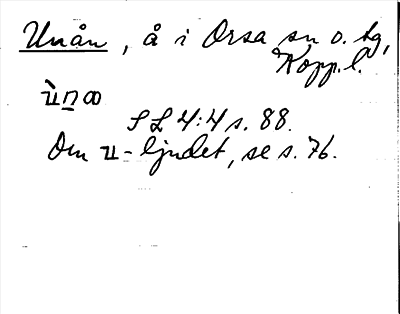 Unån, å i Orsa sn o. tg,
Kopp. l.
SL 4:4 s. 88.
Om u-ljudet, se s. 76.